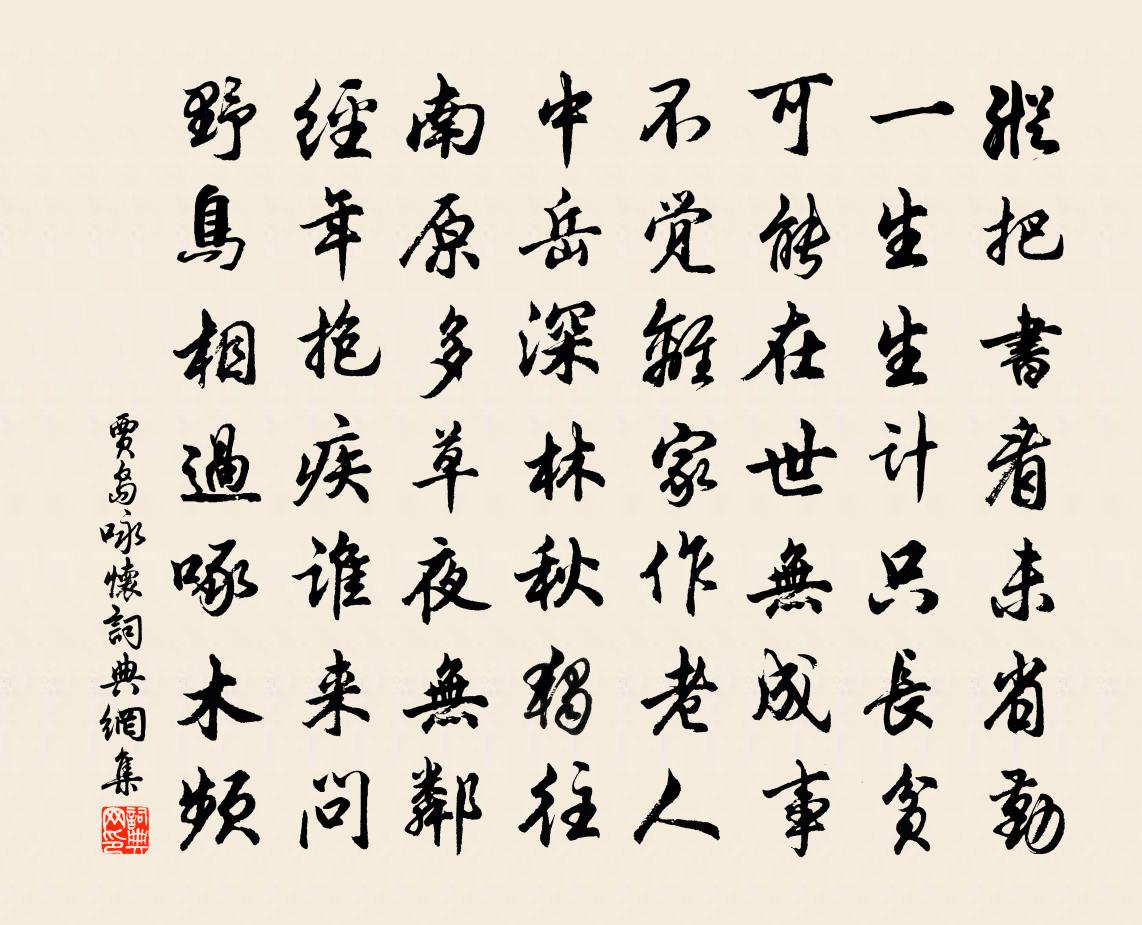 縱把書看未省勤
一生生計只長貧
可能在世無成事
不覚離家作老人
中岳深林秋獨往
南原多草夜無鄰
經年抱疾誰来問
野鳥相過啄木頻
賈島咏懷詞典網集
詞典网印